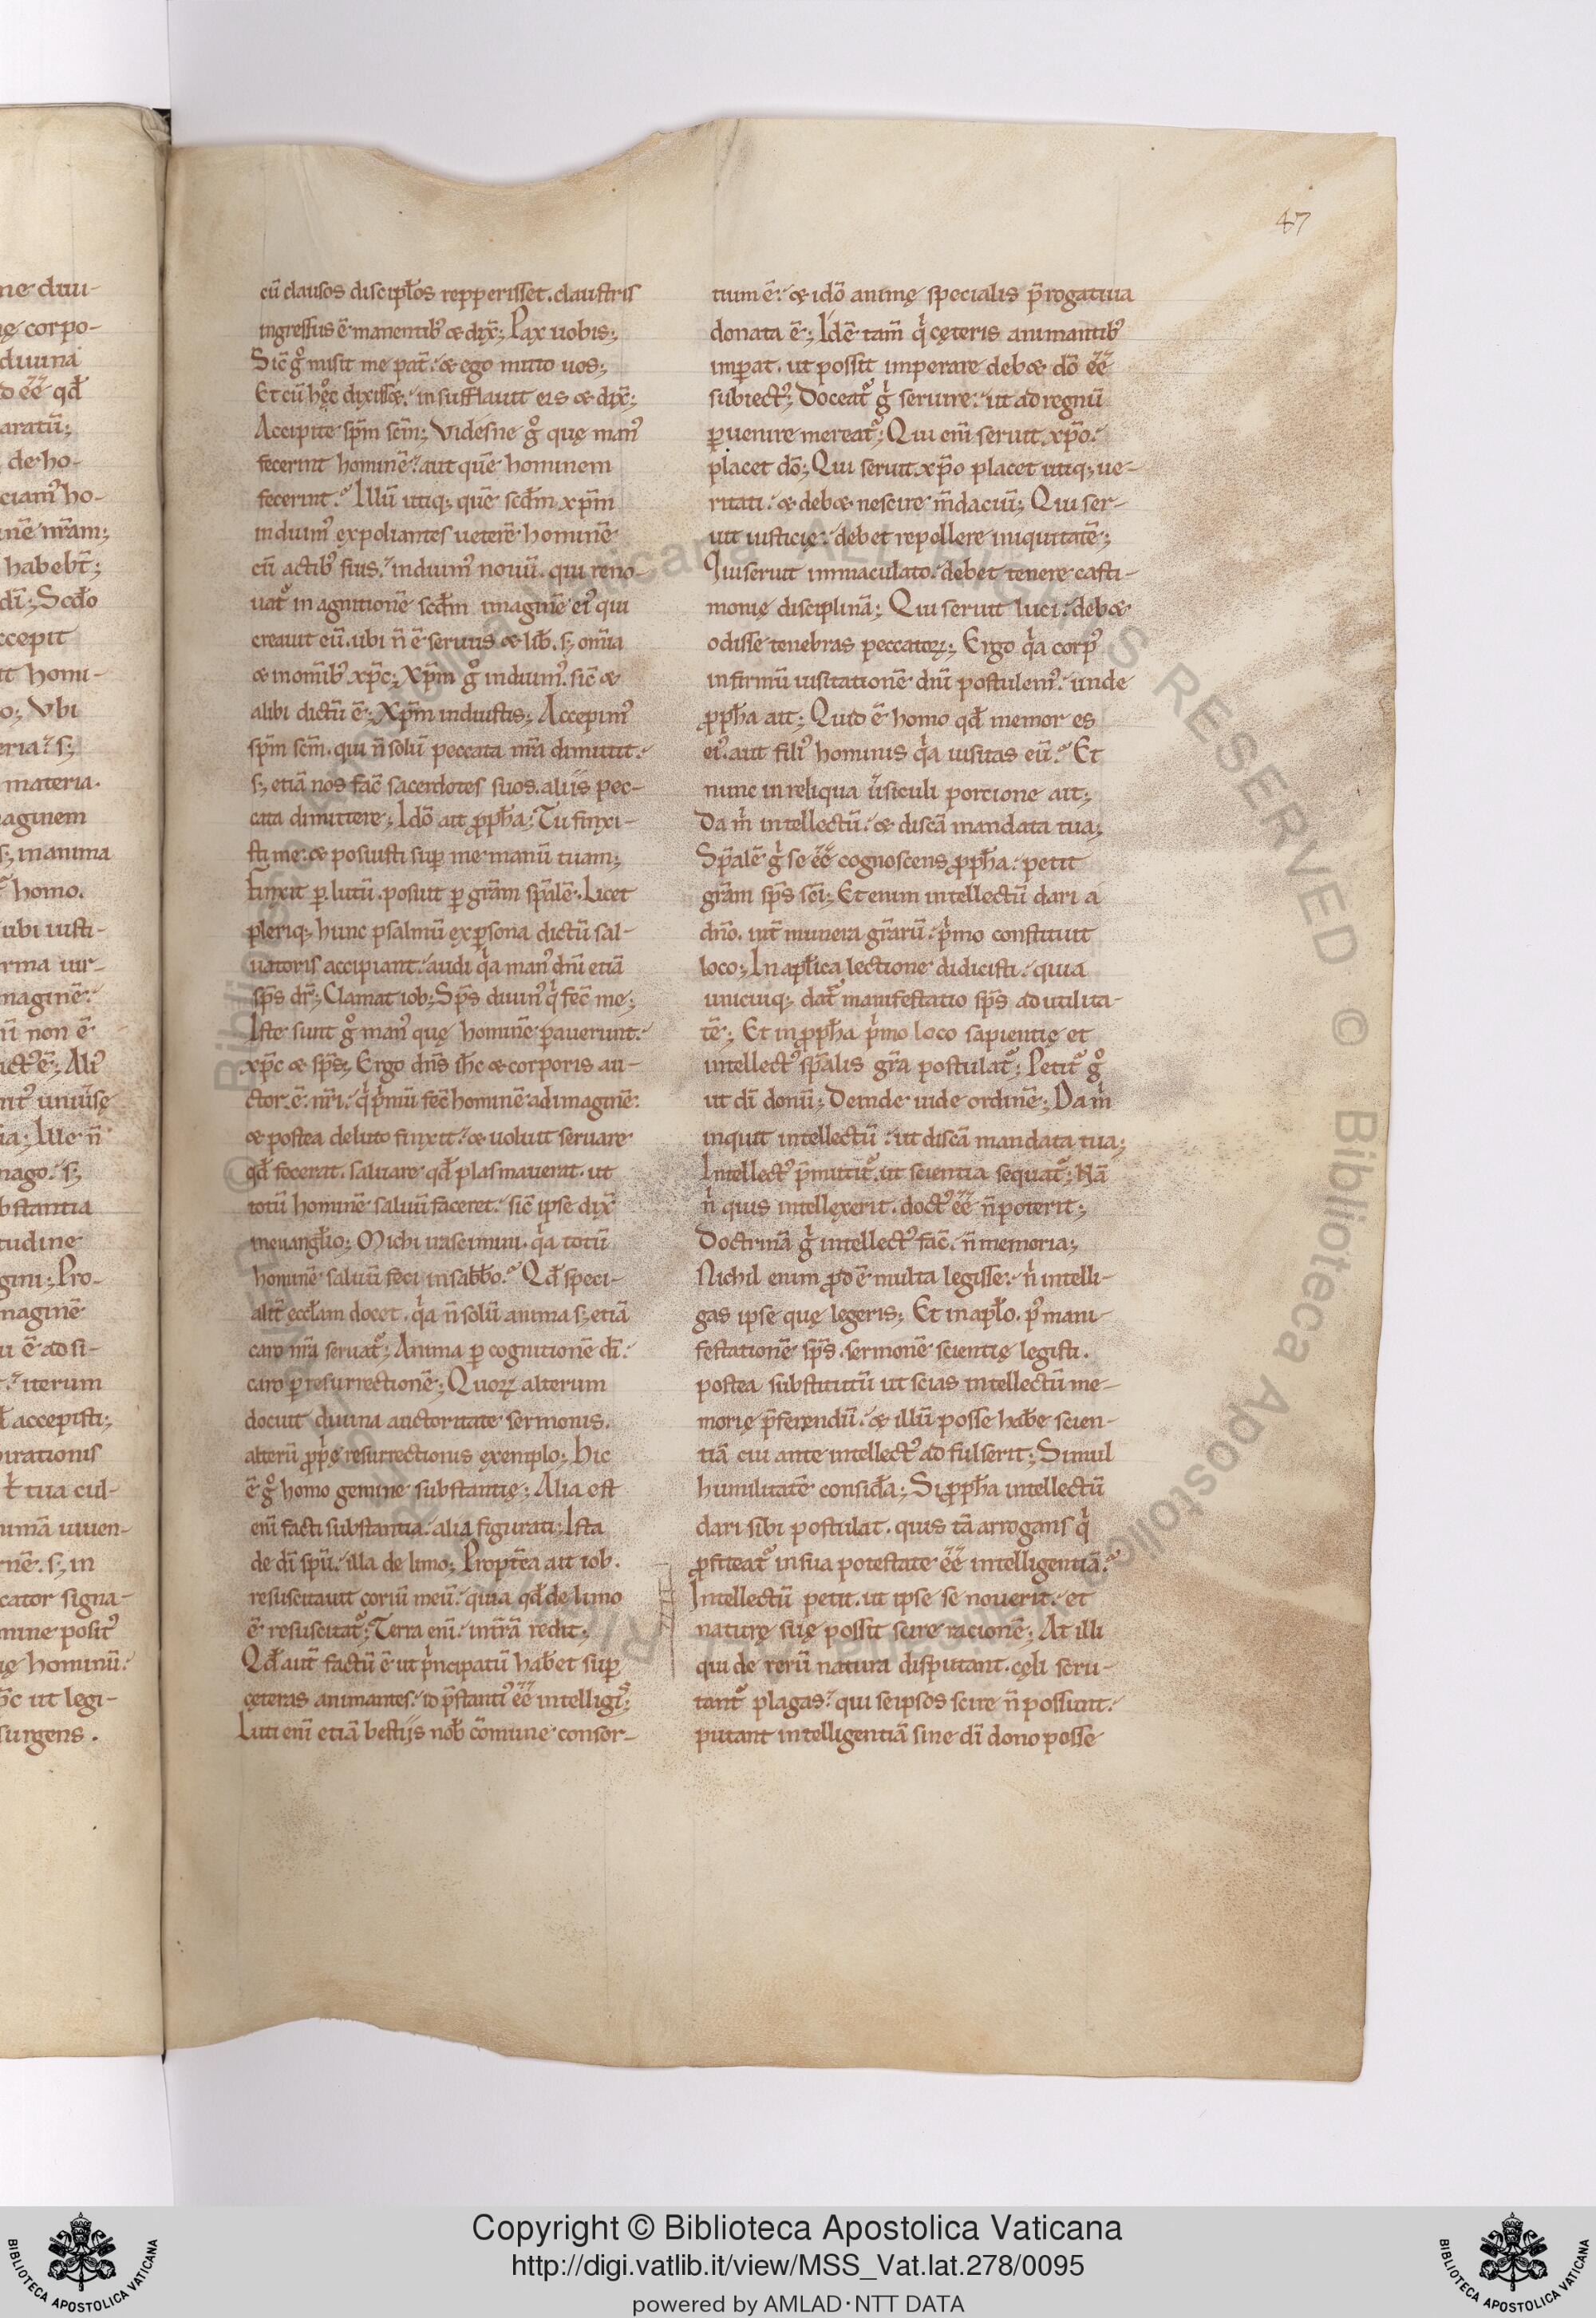 47
cū clausos discipłos repperisset. claustris
ingressus ē manentib; & dix̄; Pax uobis;
Sic̄ gͦ misit me pat̄: & ego mitto uos;
Et cū hęc dixisset: insufflauit eis & dix̄;
Accipite sp̄m sc̄m; Videsne gͦ quę man᾿
fecerint hominē: aut quē hominem
fecerint? Illū utiq; quē scd̄m xp̄m
induim᾿ expoliantes ueterē hominē
cū actib; suis: induim᾿ nouū. qui reno-
uat᾿ in agnitionē scd̄m imaginē ei᾿ qui
creauit eū. ubi n̄ ē seruus & lib̄. s; om̄ia
& in om̄ib; xp̄c; Xp̄m gͦ induim᾿. sic̄ &
alibi dictū ē; Xp̄m induistis; Accepim᾿
sp̄m sc̄m. qui n̄ solū peccata nr̄a dimittit:
s; etiā nos fac̄ sacerdotes suos. aliis pec-
cata dimittere; Idō ait ꝓpħa; Tu finxi-
sti me: & posuisti suꝑ me manū tuam;
finxit ꝑ lutū. posuit ꝑ grām sp̄alē. Licet
pleriq; hunc psalmū ex ꝑsona dictū sal-
uatoris accipiant: audi qa man᾿ dn̄i etiā
sp̄s dr̄; Clamat iob; Sp̄s diuin᾿ q fec̄ me;
Iste sunt gͦ man᾿ quę hominē parauerunt:
xp̄c & sp̄s; Ergo dn̄s ih̄c & corporis au-
ctor. ē. nr̄i: q p̄mū fec̄ hominē ad imaginē:
& postea de luto finxit: & uoluit seruare
qđ fecerat. saluare qđ plasmauerat. ut
totū hominē saluū faceret. sic̄ ipse dix̄
in euangłio; Michi irascimini. qa totū
hominē saluū feci in sabbo? Qđ speci-
alit̄ eccłam docet. qa n̄ solū anima s; etiā
caro nr̄a seruat᾿; Anima ꝑ cognitionē dī:
caro ꝑ resurrectionē; Quoꝝ alterum
docuit diuina auctoritate sermonis.
alterū ꝓpę resurrectionis exemplo; Hic
ē gͦ homo geminę substantię; Alia est
eni facti substantia: alia figurati; Ista
de dī spū: illa de limo; Propt̄ea ait iob.
resuscitauit coriū meū: quia qđ de limo
ē resuscitat᾿; Terra eni: in tr̄ā redit;
Qđ aut̄ factū ē ut p̄ncipatū habet suꝑ
ceteras animantes: id p̄stanti᾿ ēē intelligit᾿;
Luti eni etiā bestiis nob̄ cōmune consor-
tium ē: & idō animę specialis p̄rogatiua
donata ē; Idē tam̄ q cęteris animantib;
imꝑat. ut possit imperare debet dō ēē
subiect᾿; Doceat᾿ g seruire: ut ad regnū
ꝑuenire mereat᾿; Qui eni seruit xp̄o:
placet dō; Qui seruit xp̄o placet utiq; ue-
ritati: & debet nescire m̄daciū; Qui ser-
uit iusticię: debet repollere iniquitatē;
Qui seruit immaculato: debet tenere casti-
monię disciplinā; Qui seruit luci: debet
odisse tenebras peccatoꝝ; Ergo qa corp᾿
infirmū uisitationē dn̄i postulem᾿: unde
ꝓpħa ait; Quid ē homo qđ memor es
ei᾿. aut fili᾿ hominis qa uisitas eū? Et
nunc in reliqua ūsiculi porcione ait;
Da m intellectū: & discā mandata tua;
Sp̄alē g se ēē cognoscens ꝓpħa: petit
grām sp̄s sc̄i; Et enim intellectū dari a
dn̄o. int̄ munera gr̄arū: p̄mo constituit
loco; In apłica lectione didicisti: quia
unicuiq; dat᾿ manifestatio sp̄s ad utilita-
tē; Et in ꝓpħa p̄mo loco sapientię et
intellect᾿ sp̄alis gr̄a postulat᾿; Petit᾿ gͦ
ut dī donū; Deinde uide ordinē; Da m
inquit intellectū: ut discā mandata tua;
Intellect᾿ p̄mittit᾿. ut scientia sequat᾿; Nā
n quis intellexerit. doct᾿ ēē n̄ poterit;
Doctrinā g intellect᾿ fac̄. n̄ memoria;
Nichil enim ꝓdē multa legisse: n intelli-
gas ipse quę legeris; Et in apłо. p᾿ mani-
festationē sp̄s. sermonē scientię legisti.
postea substitutū ut scias intellectū me-
morię p̄ferendū: & illū posse habe scien-
tiā cui ante intellect᾿ adfulserit; Simul
humilitatē considā; Si ꝓpħa intellectū
dari sibi postulat. quis tā arrogans q
ꝓfiteat᾿ in sua potestate ēē intelligentiā?
Intellectū petit. ut ipse se nouerit: et
naturę suę possit scire racionē; At illi
qui de rerū natura disputant. cęli scru-
tant᾿ plagas: qui se ipsos scire n̄ possunt:
putant intelligentiā sine dī dono posse
Copyright © Biblioteca Apostolica Vaticana
http://digi.vatlib.it/view/MSS_Vat.lat.278/0095
powered by AMLAD·NTT DATA
BIBLIOTECA APOSTOLICA VATICANA
BIBLIOTECA APOSTOLICA VATICANA